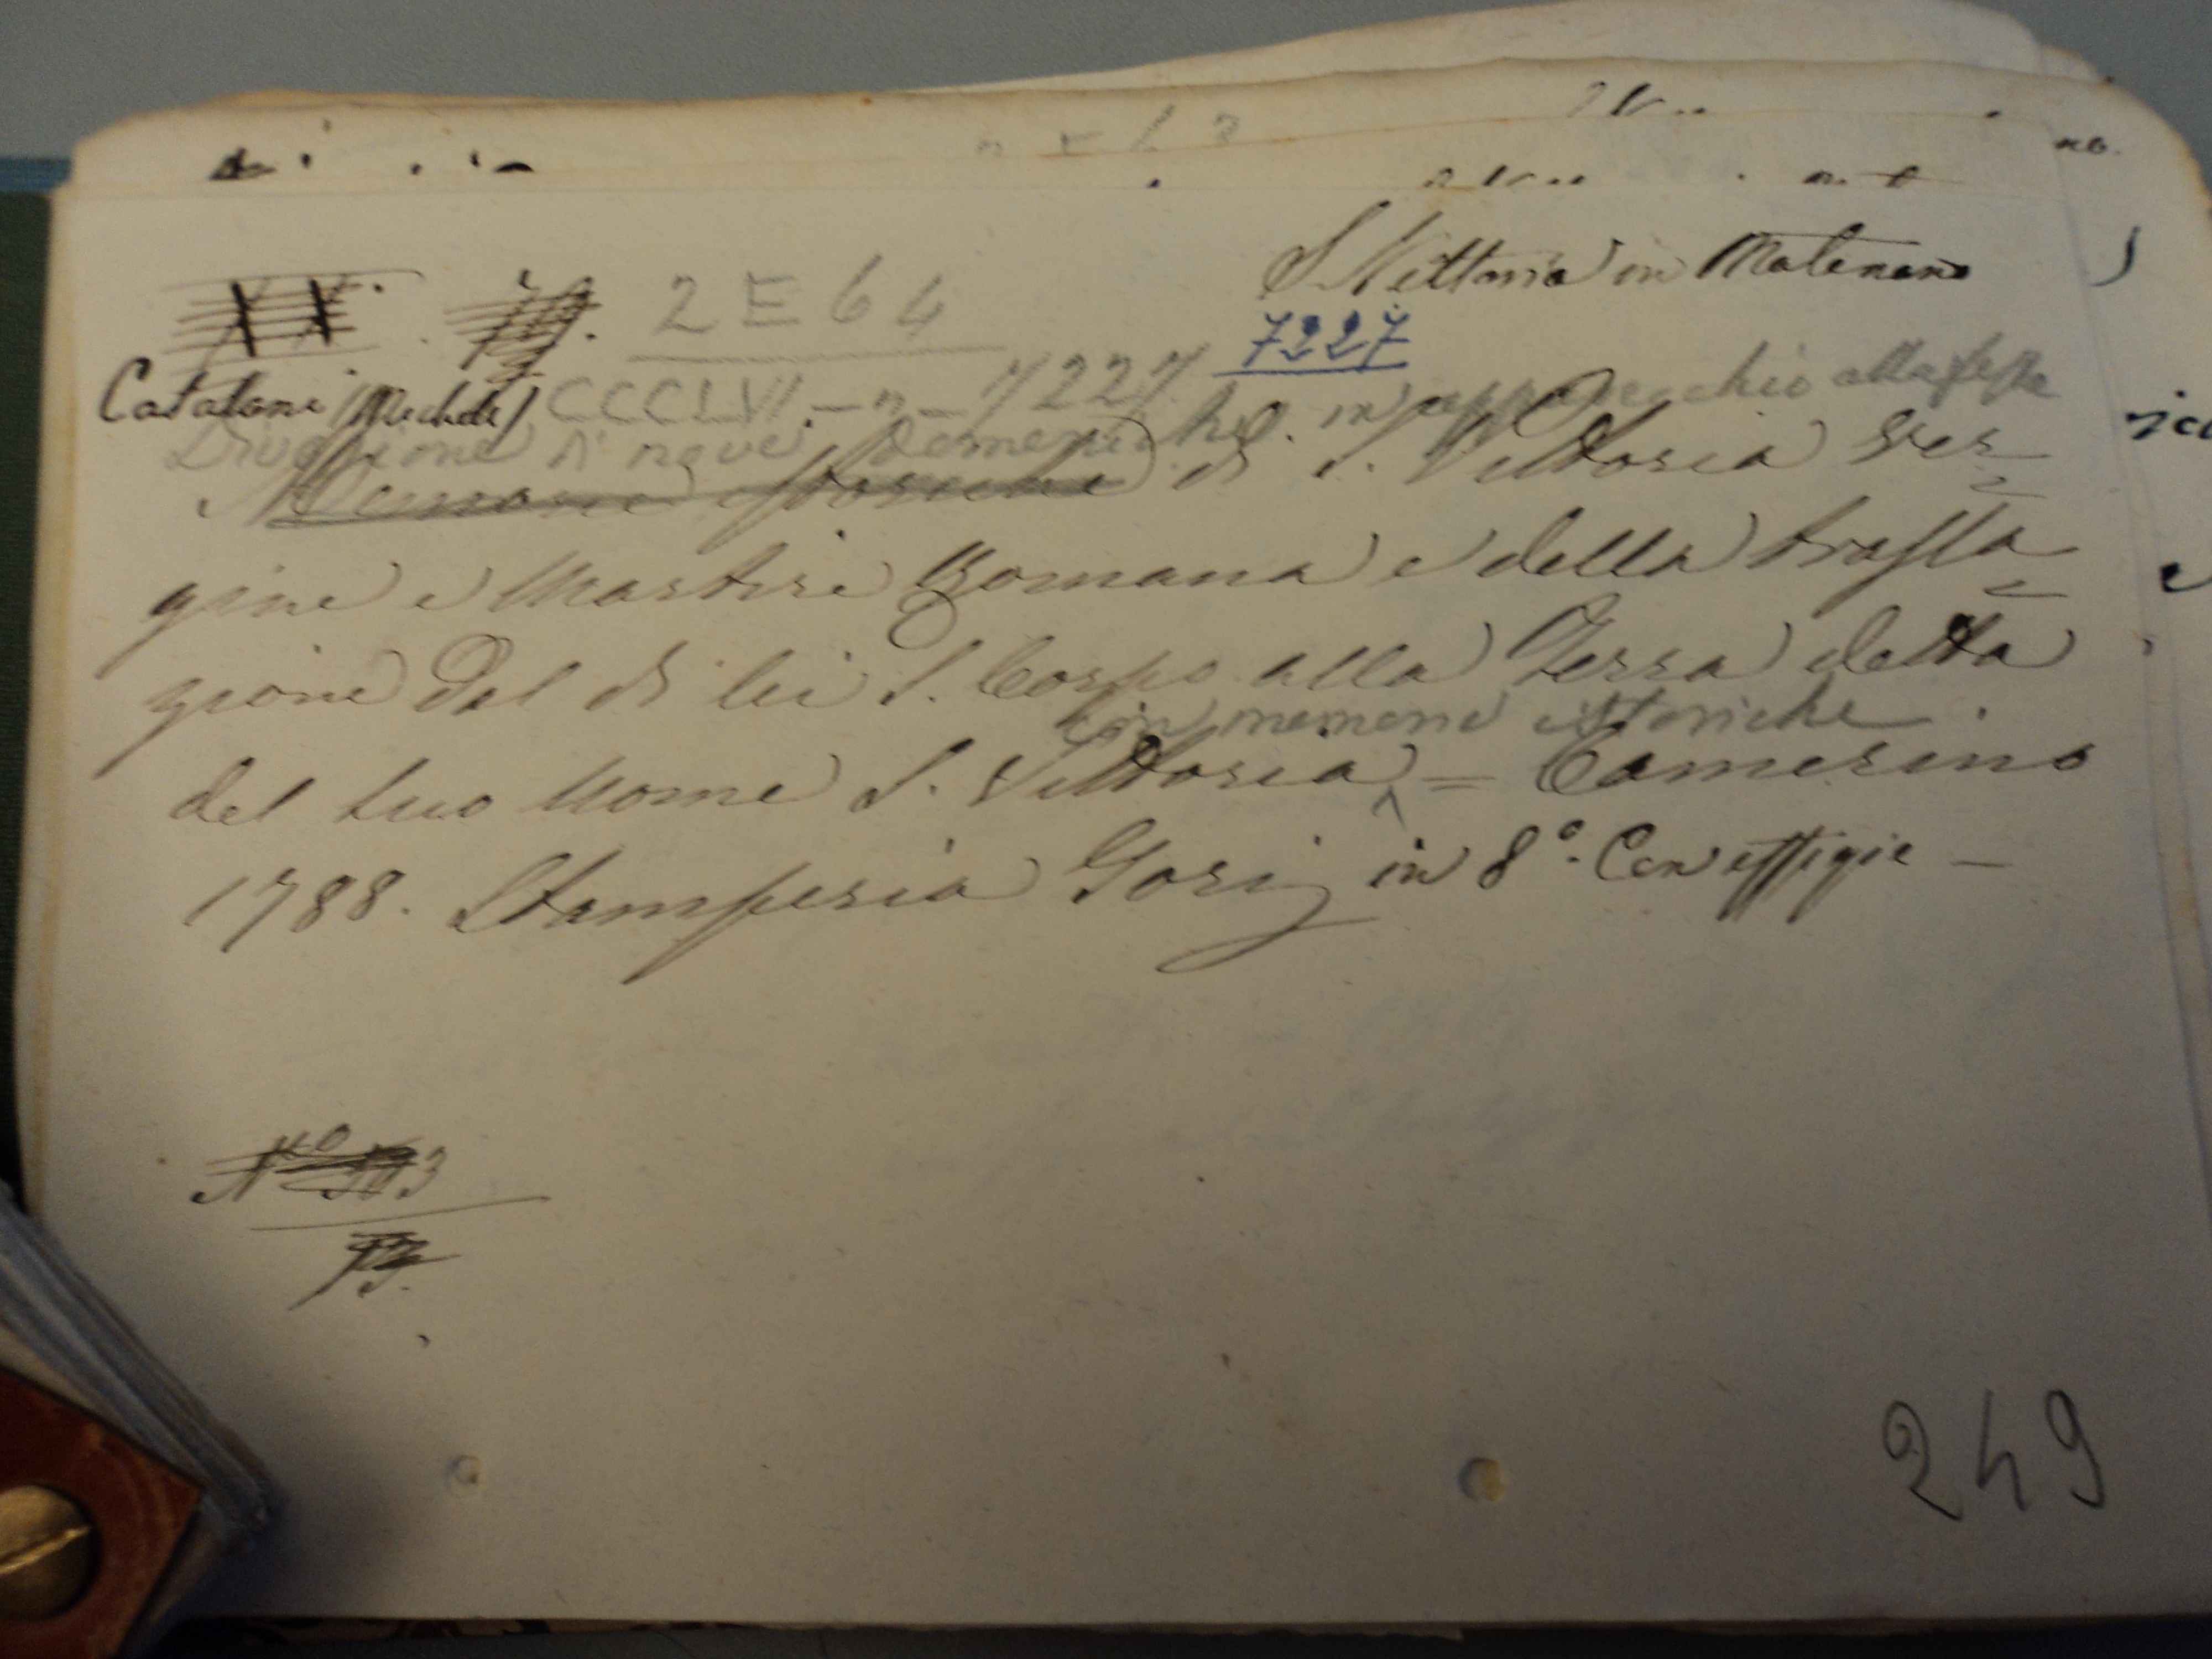 S. Vittoria in Matenano
2 E 64
7227
Catalani (Michele) CCCLVI. – n – 7227
Divozione di nove Domeniche in apparecchio alla festa
Memorie istoriche di S. Vittoria Ver=
gine e Martire Romana e della trasla=
zione del di lei S. Corpo alla Terra detta
con memorie istoriche
del suo Nome S. Vittoria = Camerino
1788. Stamperia Gori in 8°. Con effigie –
249